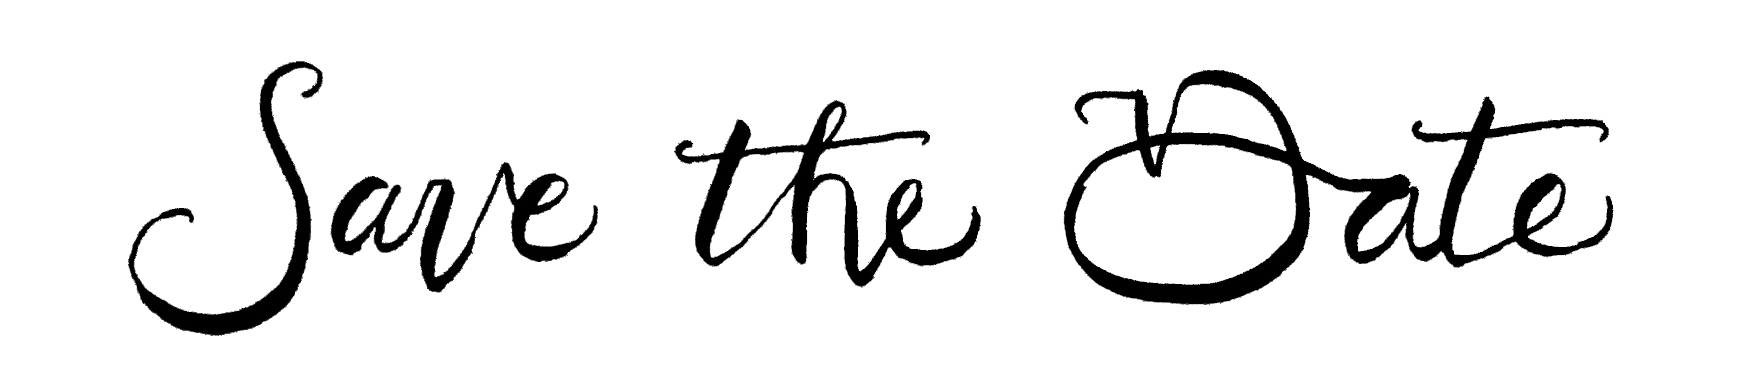 Save the Date